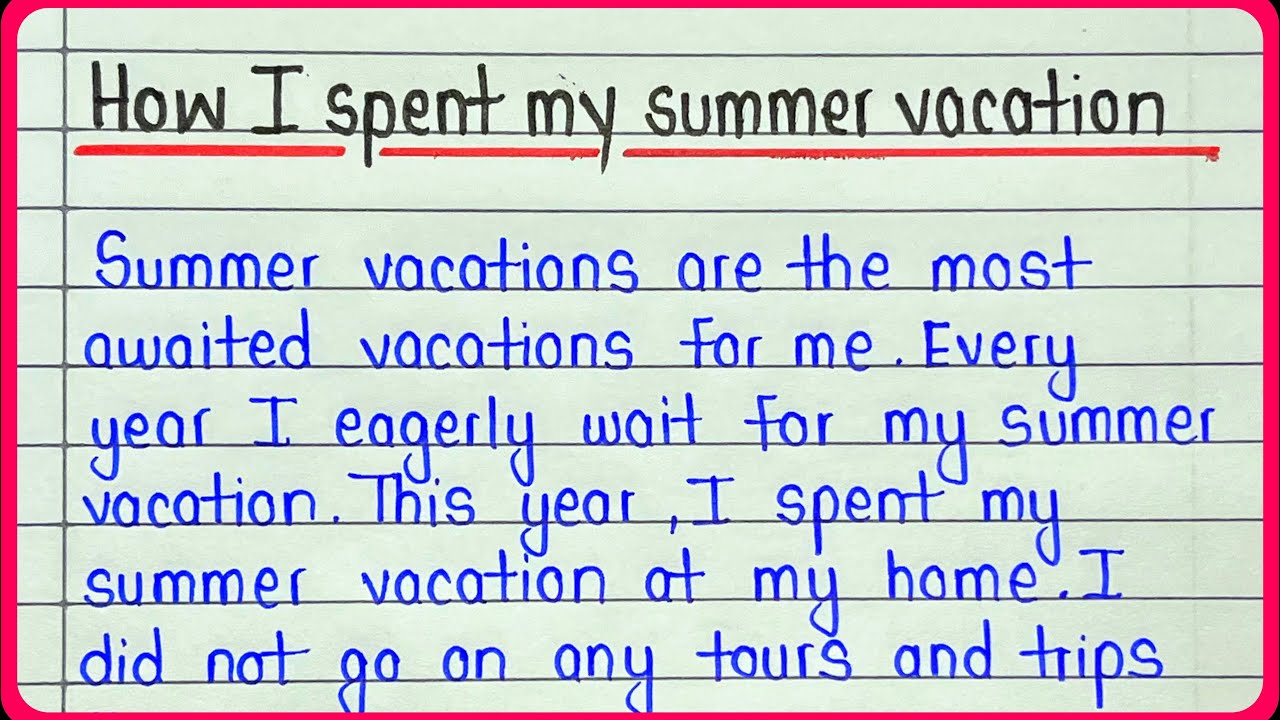 How I spent my summer vacation
Summer vacations are the most
awaited vacations for me. Every
year I eagerly wait for my summer
vacation. This year, I spent my
summer vacation at my home. I
did not go on any tours and trips